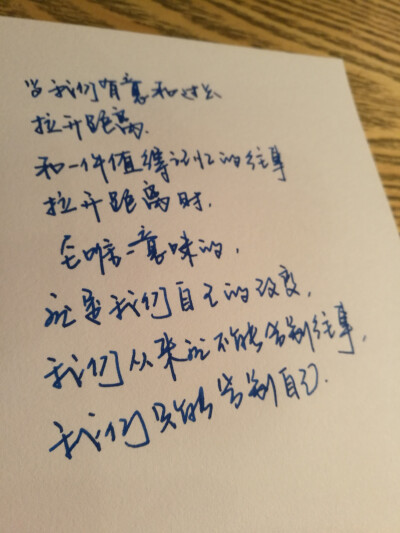 当我们有意和过去
拉开距离.
和一件值得记忆的往事
拉开距离时,
它唯一意味的,
就是我们自己的改变,
我们从来就不能告别往事,
我们只能告别自己.